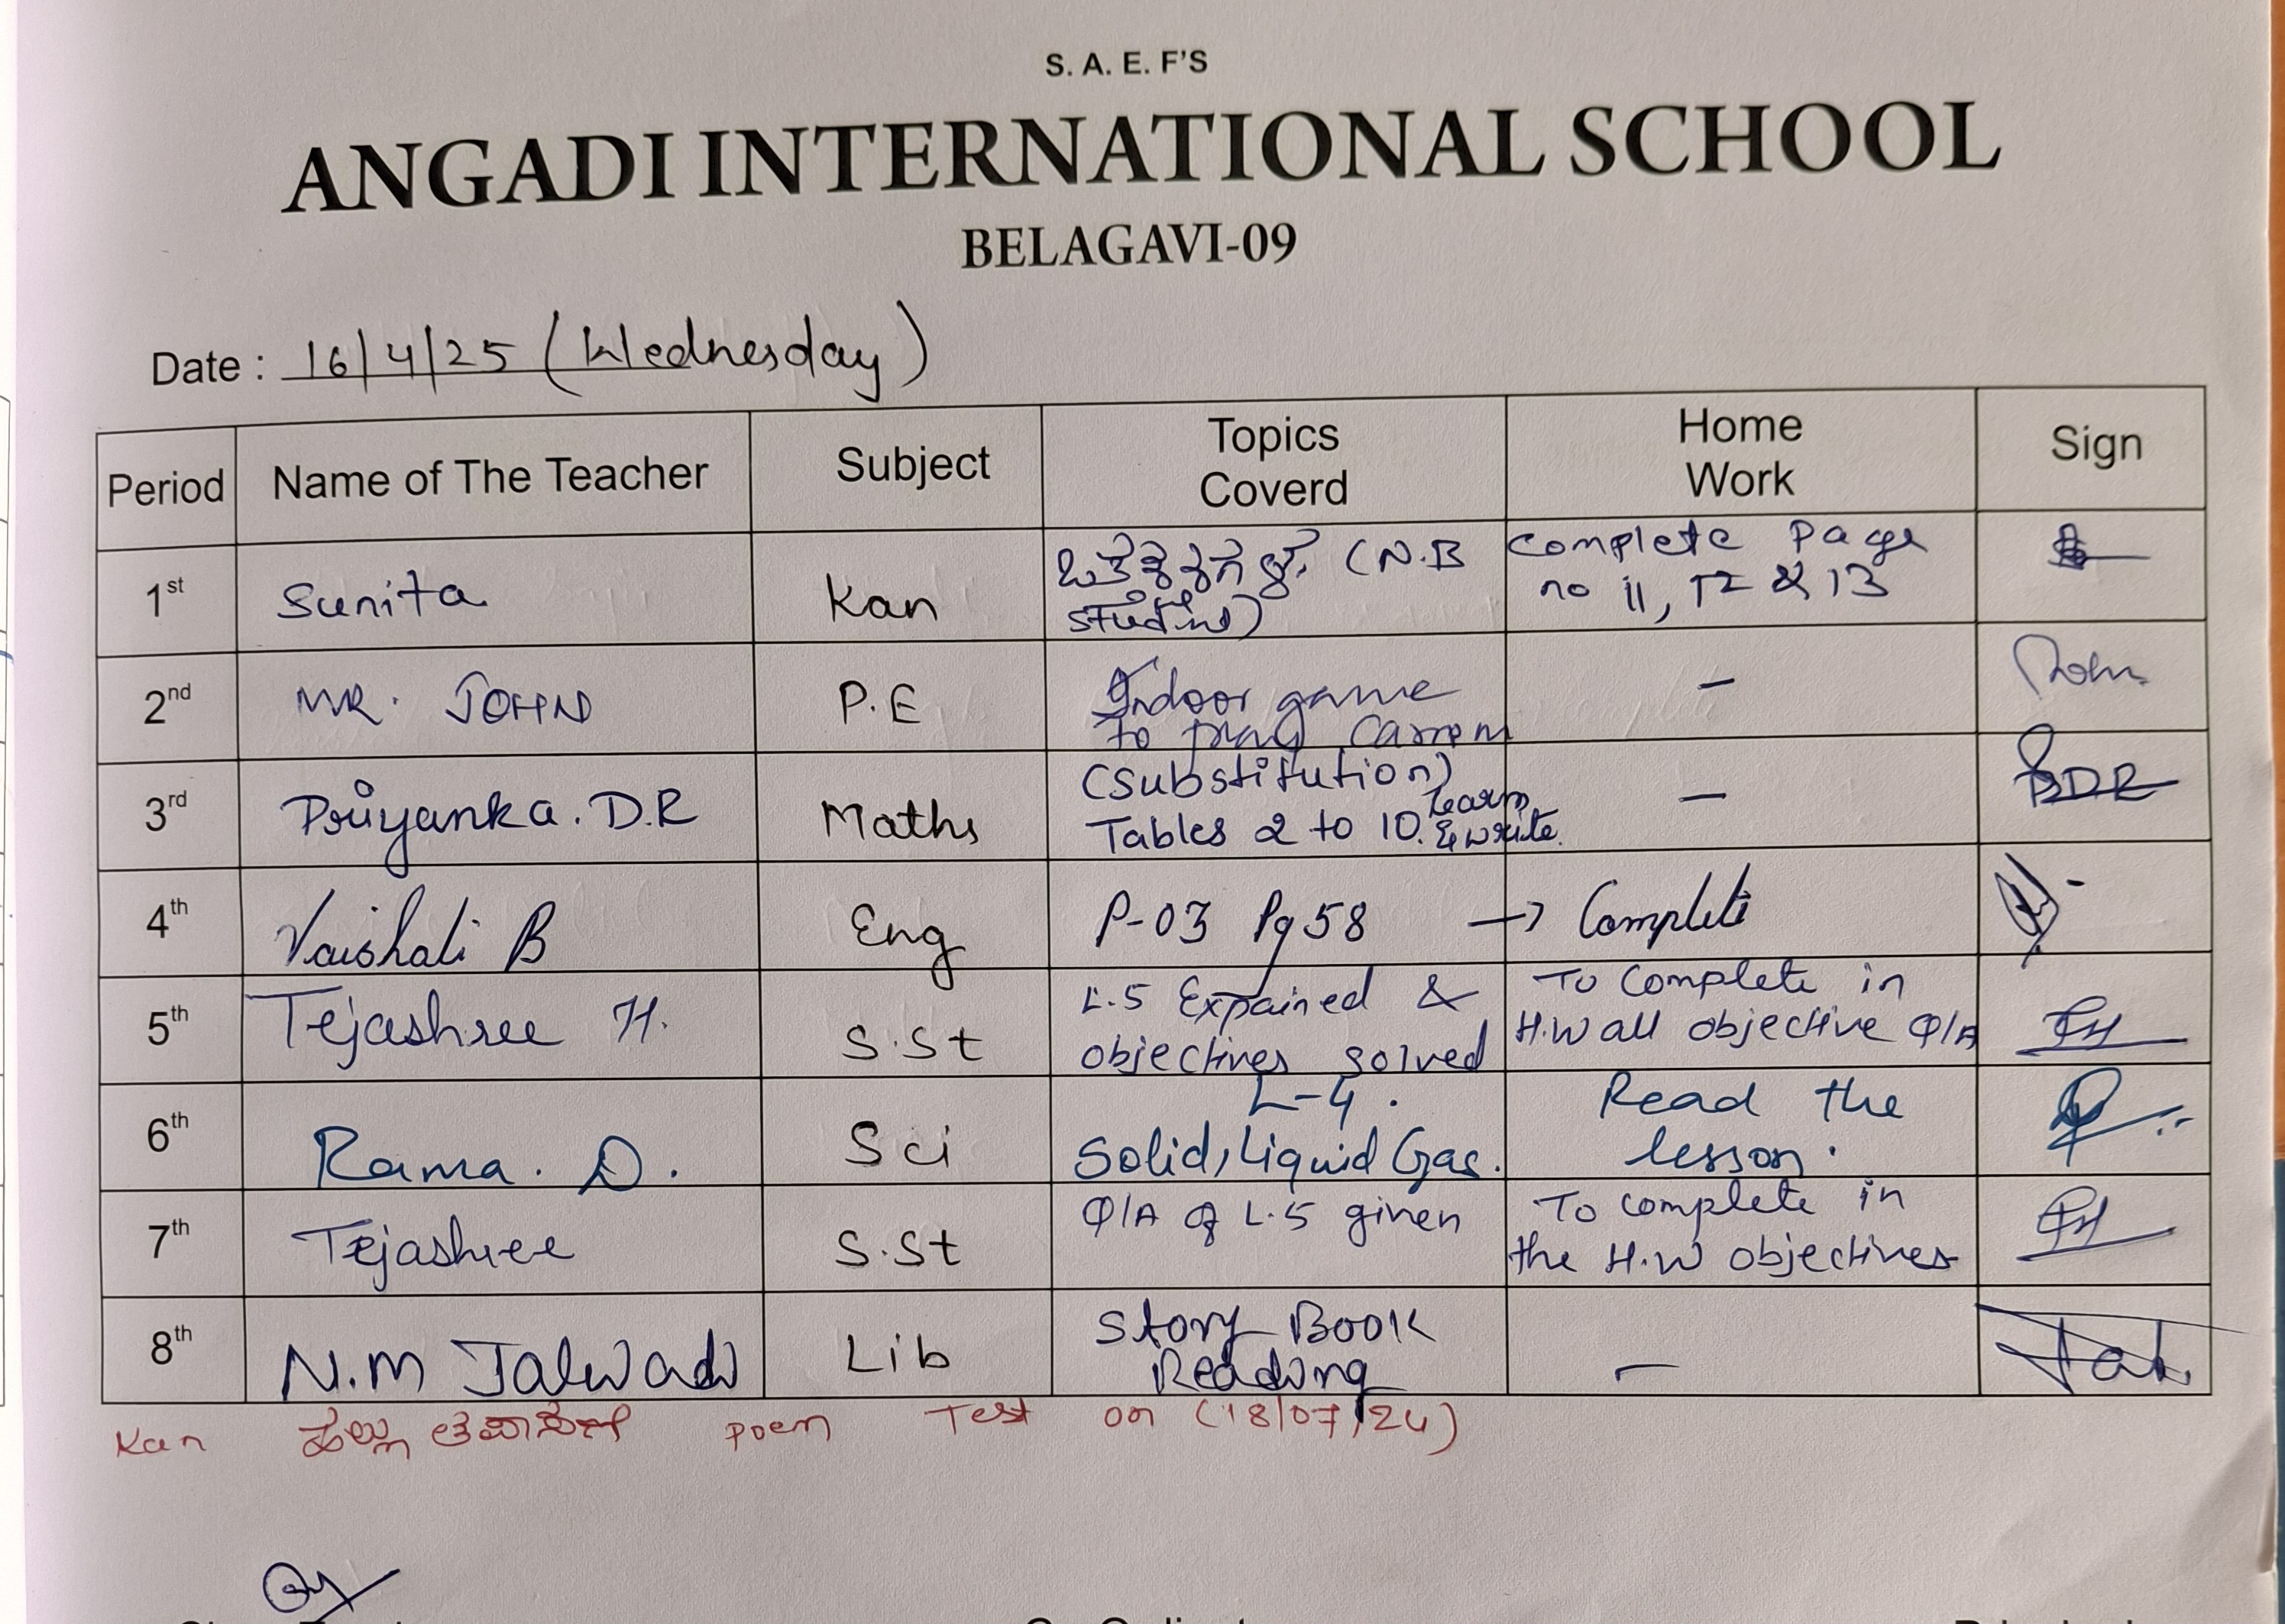 S. A. E. F'S
ANGADI INTERNATIONAL SCHOOL
BELAGAVI-09
Date : 16/4/25 (Wednesday)
Period Name of The Teacher Subject Topics Coverd Home Work Sign
1st Sunita Kan (N.B complete page
no 11, 12 & 13
2nd MR. JOHN P.E Indoor game -
to play Carrom
3rd Priyanka. D.R Maths (substitution) -
Tables 2 to 10. Learn & write.
4th Vaishali B Eng P-03 Pg 58 → Complete
5th Tejashree H. S.St L.5 Expained & To Complete in
objectives solved H.W all objective Q/A
6th Rama. D. Sci L-4. Read the
Solid, Liquid Gas. lesson.
7th Tejashree S.St Q/A of L.5 given To complete in
the H.W objectives
8th N.M Jalwadi Lib Story Book -
Reading
Kan poem Test on (18/07/24)